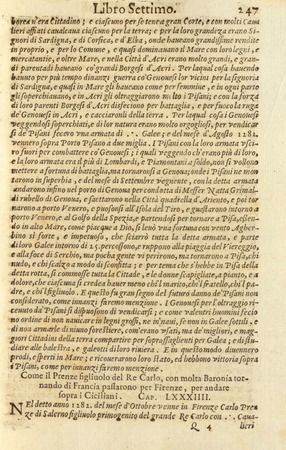 Libro Settimo. 247
borea n'era Cittadino; e ciascuno per se tenea gran Corte, e con molti Caua
lieri affitati caualcaua ciascuno per la terra; e per la loro grandezza erano Si-
gnori di Sardigna, e di Corsica, e d'Elba, onde haueano grandissime rendite
in proprio, e per lo Comune, e quasi dominauano il Mare con loro legni, e
mercatantie, e oltre Mare, e nella Città d'Acri erano molto grandi, e gran-
di parentadi haueano co' grandi Borgesi d'Acri. Per laqual cosa hauendo
hauuto per più tempo dinanzi guerra co' Genouesi lor vicini per la signoria
di Sardigna, e quasi in Mare gli haueano come per femmine, e in ogni parte
gli soperchiauano, e in Acri gli oltraggiarono molto i Pisani; e con la forza
de loro parenti Borgesi d'Acri disfecero per battaglia, e per fuoco la ruga
de' Genouesi in Acri, e cacciaronli della terra. Per laqual cosa i Genouesi
veggendosi soperchiati, e di lor natura erano molto orgogliosi, per vendicar
si de' Pisani fecero vna armata di Galee; e del mese d'Agosto 1282.
vennero sopra Porto Pisano a due miglia. i Pisani con la loro armata vsci-
ro fuori per combattere co' Genouesi; i quali veggendo ch'erano più di loro,
e la loro armata era il più di Lombardi, e Piamontani a soldo, non si vollono
mettere a fortuna di battaglia, ma tornaronsi a Genoua; onde i Pisani ne mon
tarono in superbia, e del mese di Settembre veguente, con la detta armata
andarono infino nel porto di Genoua per condotta di Messer Natta Grimal-
di rubello di Genoua, e saettarono nella Città quadrella d'Ariento, e poi tor
narono a porto Venero, e puosonsi all'Isola del Tiro, e guastarono intorno a
porto Venero, e al Golfo della Spezia; partendosi per tornare a Pisa, essen-
do in alto Mare, come piacque a Dio, si leuò vna fortuna con vento Agher-
bino sì forte, e impetuoso, che sciarrò tutta la detta armata, e parte
di loro Galee intorno di 25. percossono, e ruppono alla piaggia del Viereggio,
e alla foce di Serchio, ma pochia gente vi perirono, ma tornarono a Pisa, chi
nudo, e chi scalzo a modo di sconfitta; e per tema che s'hebbe in Pisa della
detta rotta, si commosse tutta la Cittade, e le donne scapigliate, a pianto, e a
dolore, che ciascuna si credea hauer meno chi'l marito, chi'l fratello, chi'l pa-
dre, e chi'l figliuolo. E questo fu gran segno del futuro danno de' Pisani non
considerato, come innanzi faremo mentione. i Genouesi per l'oltraggio ri-
ceuuto da' Pisani si dispuosono di vendicarsi; e come valenti huomini fecio
no ordine di non nauicare in legni grossi, ne in naui, se non in Galee sottili, e
di non armarle di niuno forestiere, com'erano vsati, ma de' migliori, e mag-
giori Cittadini della terra compartire per soprassaglienti per Galea; e di stu-
diare alle balestra, e galeotti di loro riuiera. E in questo modo diuennero
prodi, esperti in Mare; e ricouerarono loro stato, ed hebbono vittoria sopra
i Pisani, come per innanzi faremo mentione.
Come il Prenze figliuolo del Re Carlo, con molta Baronia tor-
nando di Francia passarono per Firenze, per andare
sopra i Ciciliani. CAP. LXXXIIII.
NEl detto anno 1282. del mese d'Ottobre venne in Firenze Carlo Pren
ze di Salerno figliuolo primogenito del grande Re Carlo con
Q 4 Caua-
lieri